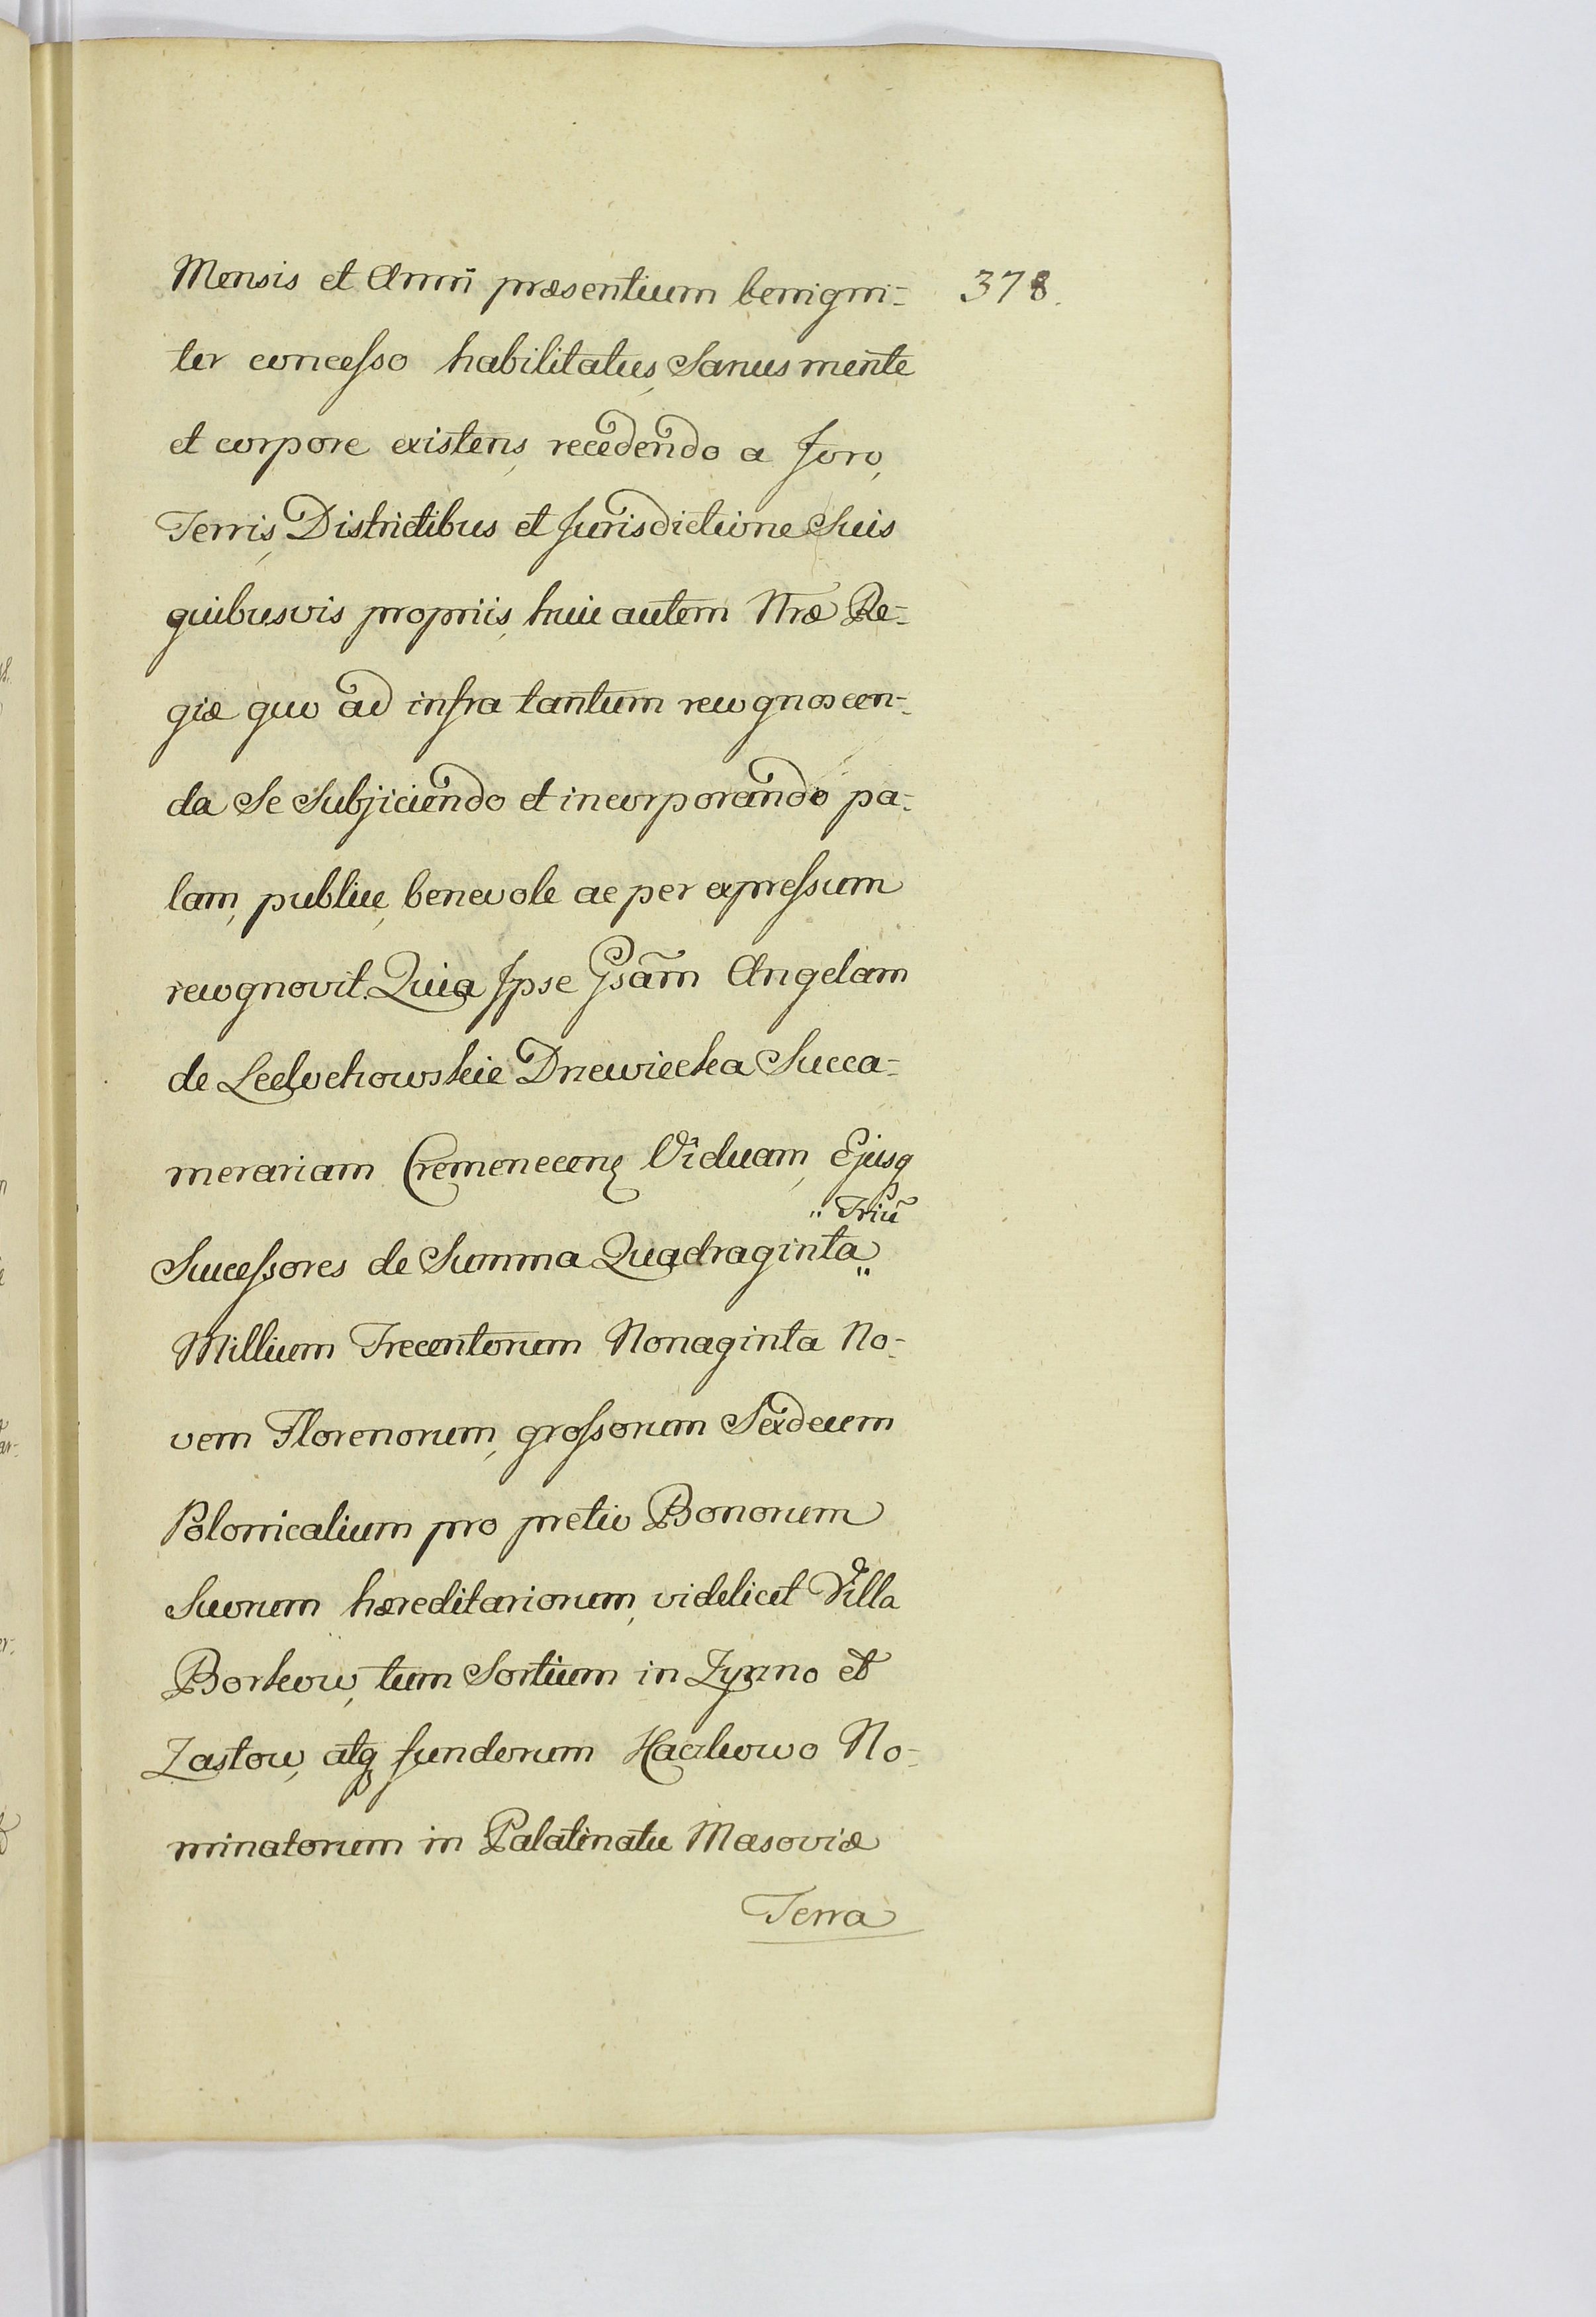 Mensis et Anni præsentium benigni- 378.
ter concesso habilitatus, Sanus mente
et corpore existens, recedendo a Foro,
Terris, Districtibus et Jurisdictione Suis
quibusvis propriis, huic autem Nræ Re-
giæ quo ad infra tantum recognoscen-
da Se Subjiciendo et incorporando pa-
lam, publice, benevole ac per expressum
recognovit. Quia Ipse Gsam Angelam
de Ledochowskie Drzewiecka Succa-
merariam Cremenecens Viduam, Ejusq
" Triũ
Successores de Summa Quadraginta"
Millium Trecentorum Nonaginta No-
vem Florenorum, grossorum Sexdecem
Polonicalium pro pretio Bonorum
Suorum hæreditariorum, videlicet Villa
Borkow, tum Sortium in Zyzno et
Zastow, atq fundorum Haczkowo No-
minatorum in Palatinatu Masoviæ
Terra